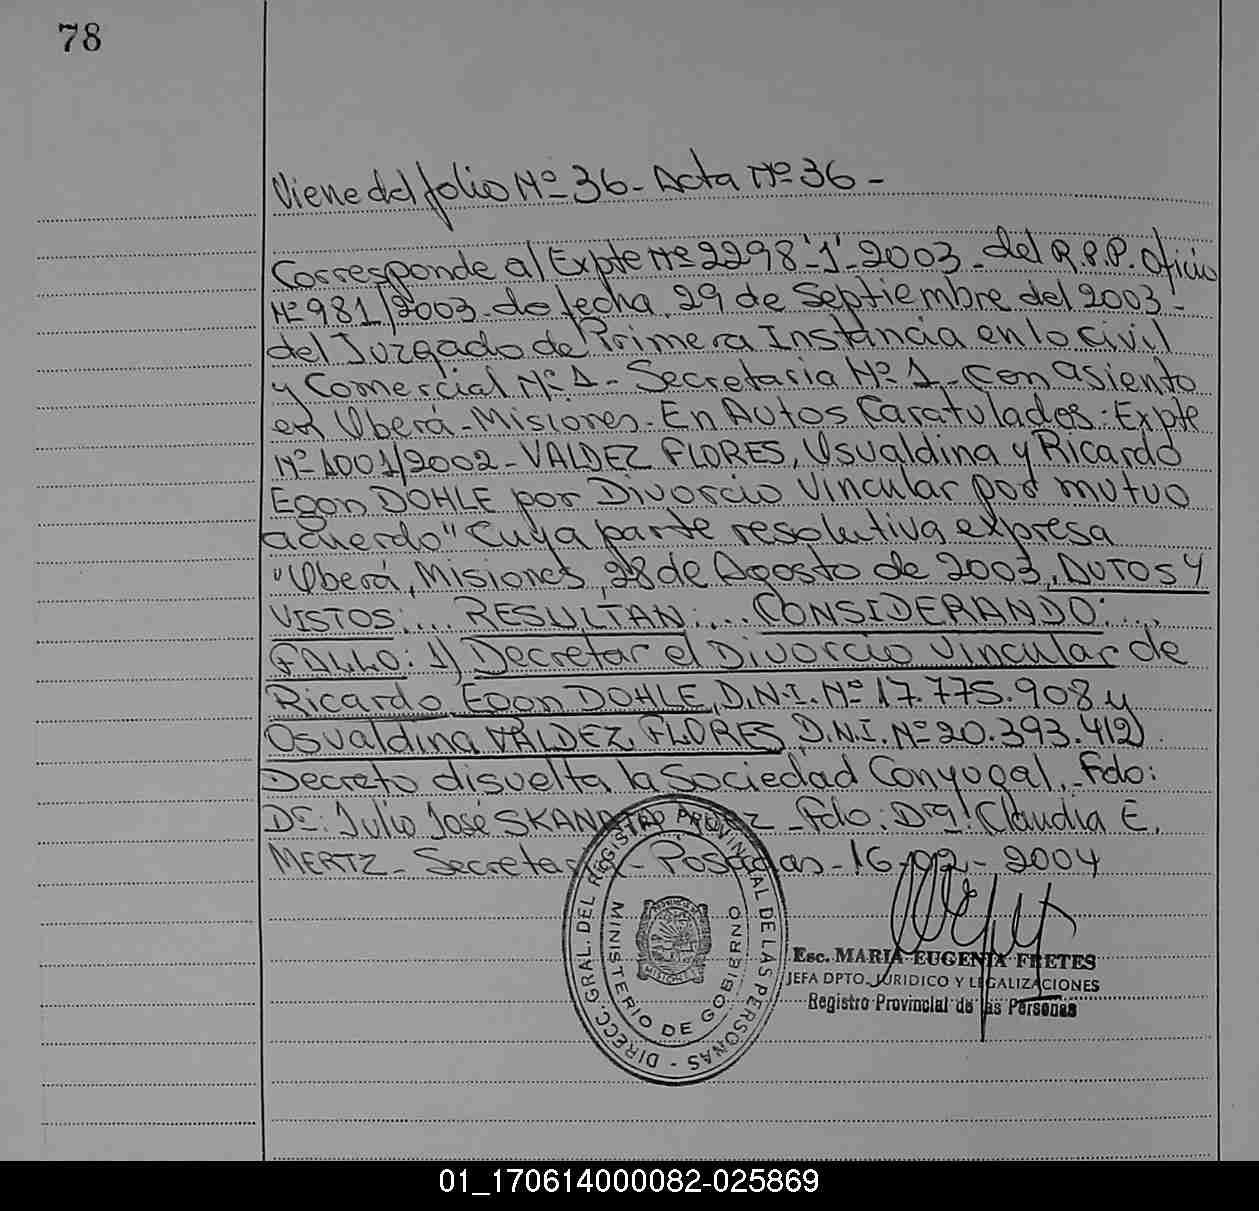 78
Viene del folio Nº 36 - Acta Nº 36 -
Corresponde al Expte Nº 2298 "1" - 2003 - del R.P.P. Oficio
Nº 981/2003 - de fecha 29 de Septiembre del 2003 -
del Juzgado de Primera Instancia en lo Civil
y Comercial Nº 1 - Secretaria Nº 1 - con asiento
en Oberá - Misiones - En Autos Caratulados: Expte
Nº 1001/2002 - VALDEZ FLORES, Usualdina y Ricardo
Egon DOHLE por Divorcio Vincular por mutuo
acuerdo" Cuya parte resolutiva expresa
"Oberá, Misiones, 28 de Agosto de 2003, AUTOS Y
VISTOS:... RESULTAN:... CONSIDERANDO:...
FALLO: 1) Decretar el Divorcio Vincular de
Ricardo Egon DOHLE, D.N.I. Nº 17.775.908 y
Osvaldina VALDEZ FLORES, D.N.I. Nº 20.393.412)
Decreto disuelta la Sociedad Conyugal. - Fdo:
Dr: Julio José - Fdo: Dra: Claudia E.
MERTZ - - Posadas - 16-02-2004
DIRECC. GRAL. DEL REGISTRO PROVINCIAL DE LAS PERSONAS -
MINISTERIO DE GOBIERNO
MISIONES
Esc. MARIA EUGENIA FRETES
JEFA DPTO. JURIDICO Y LEGALIZACIONES
Registro Provincial de las Personas
01_170614000082-025869